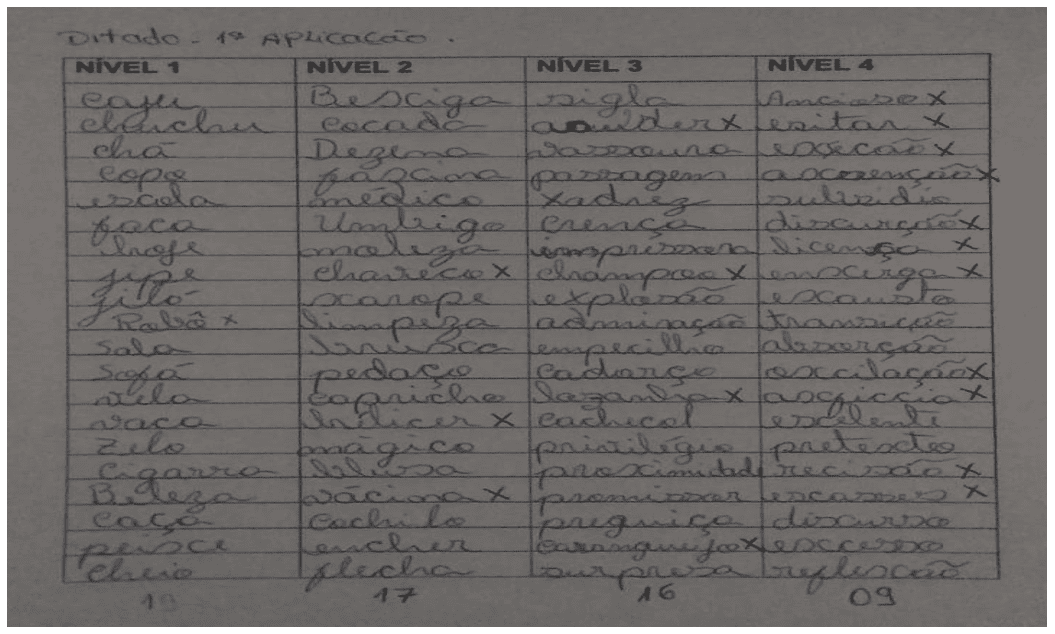 Ditado - 1ª Aplicação.
NÍVEL 1 NÍVEL 2 NÍVEL 3 NÍVEL 4
caju Besciga sigla Ancioso x
chuchu cocada x esitar x
chá Dezena vassoura x
copo fáscina passagem x
escola médico xadrez subzidio
faca Umbigo crença discurção x
hoje moleza impréssora licensa x
jipe charéco x champoo x enscerga x
jiló xarope explosão escausto
Rabô x limpeza adminação transição
Sala brusca empecilho absorção
Sofá pedaço cadarço oscilação x
vela capricho lazanha x asficcia x
vaca x cachicol excelente
Zelo mágico privilégio pretescto
Cigarro blusa proximidade recisão x
Beleza vácina x promissor escasses x
caça Cochilo preguiça discurso
peisce encher caranguejo x
Cheio flecha surpresa reflescão
17 16 09